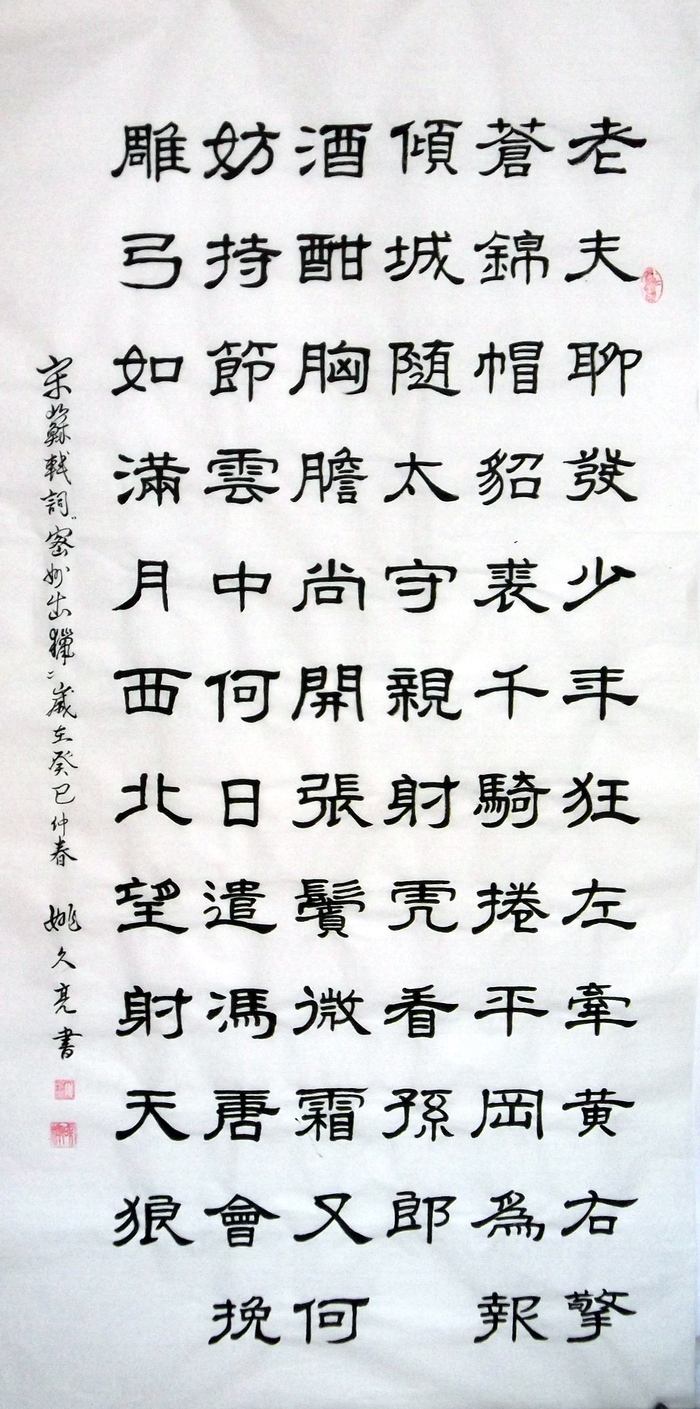 老夫聊發少年狂左牽黄右擎
蒼錦帽貂裘千騎捲平岡爲報
傾城隨太守親射虎看孫郎
酒酣胸膽尚開張鬢微霜又何
妨持節雲中何日遣馮唐會挽
雕弓如滿月西北望射天狼
宋蘇軾詞"密州出獵"歲在癸巳仲春 姚久亮書